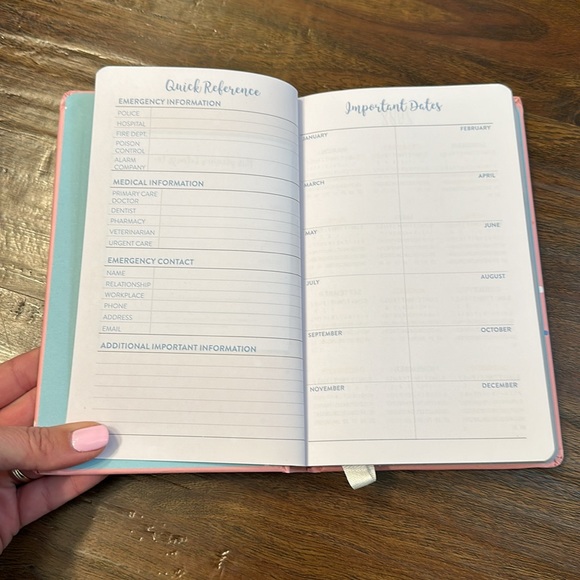 Quick Reference
EMERGENCY INFORMATION
POLICE
HOSPITAL
FIRE DEPT.
POISON
CONTROL
ALARM
COMPANY
MEDICAL INFORMATION
PRIMARY CARE
DOCTOR
DENTIST
PHARMACY
VETERINARIAN
URGENT CARE
EMERGENCY CONTACT
NAME
RELATIONSHIP
WORKPLACE
PHONE
ADDRESS
EMAIL
ADDITIONAL IMPORTANT INFORMATION
Important Dates
JANUARY FEBRUARY
MARCH APRIL
MAY JUNE
JULY AUGUST
SEPTEMBER OCTOBER
NOVEMBER DECEMBER